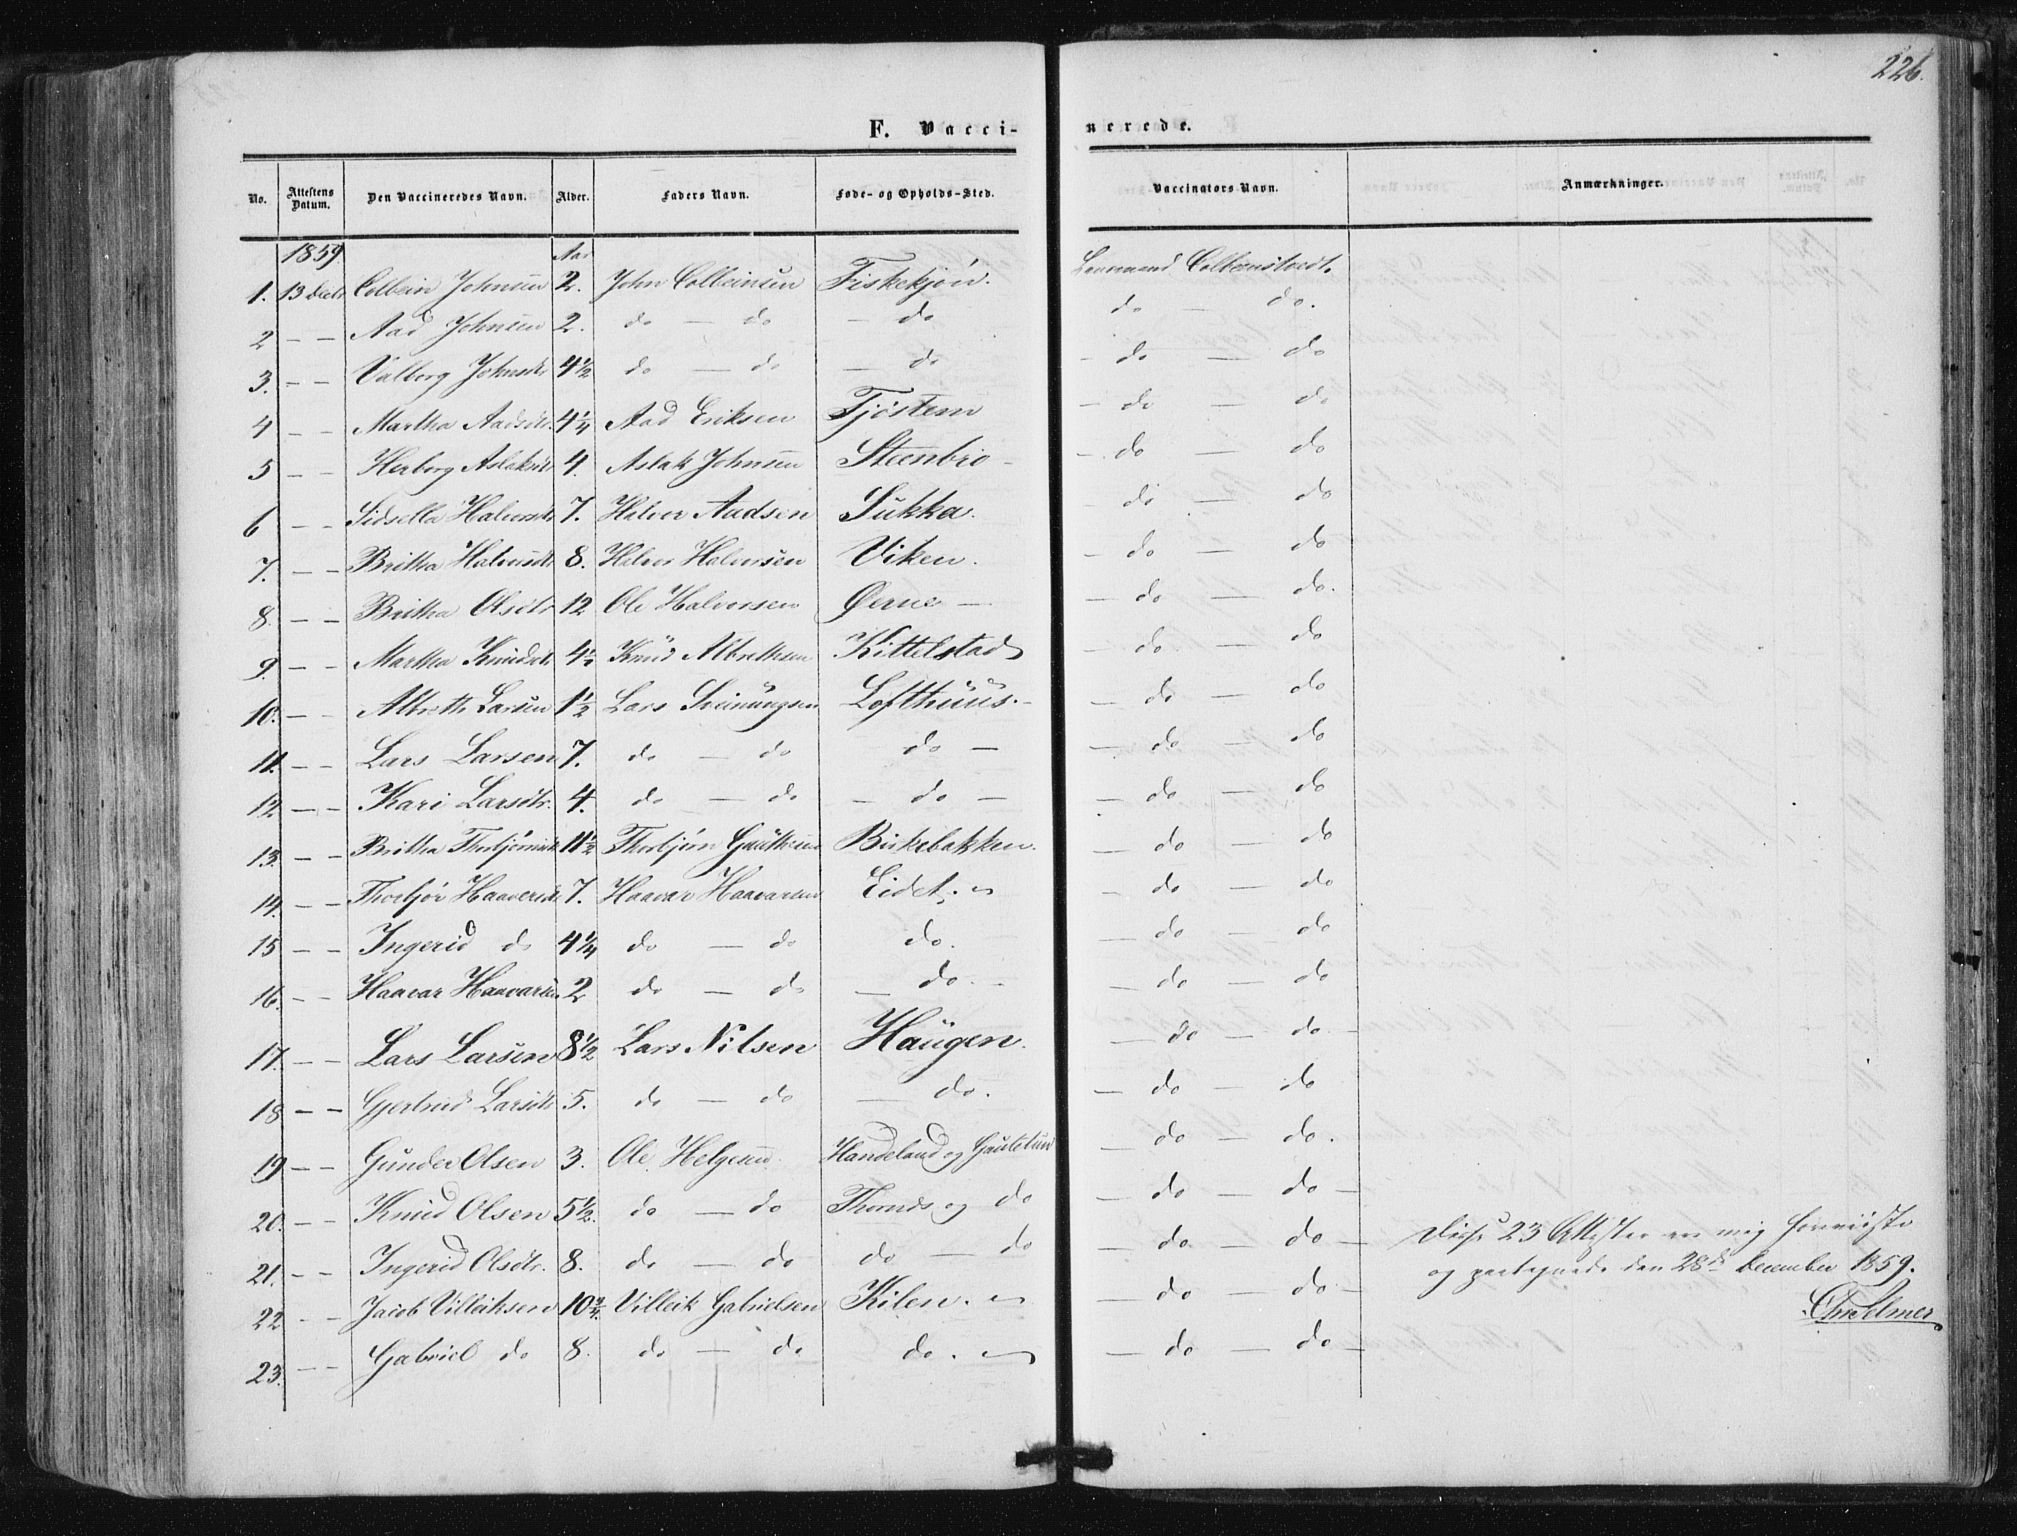 226.
F. Vacci-nerede.
No. Attestens Datum. Den Vaccineredes Navn. Alder. Faders Navn. Føde- og Opholds-Sted. Vaccinators Navn. Anmærkninger.
1859. Aar
1. 13 Decbr Colbein Johnsen 2. John Colbeinsen Fiskekjøn. Lensmand Colbernstvedt.
2 – – Aad Johnsen 2. do – do – do do do.
3. – – Valborg Johnsdr 4½ do – do – do – do – do
4 – – Martha Aadsdtr. 4¼ Aad Eriksen Tjøstem – do – do
5 – – Herborg Aslaksdt 4. Aslak Johnsen Steenbro – – do – do
6 – – Sidsella Halvorsdr 7. Halvor Aadsen Sukka. – do – do
7. – – Britha Halvorsdt 8. Halvor Halvorsen Viken. – do – do
8. – – Britha Olsdtr 12 Ole Halvorsen Øerne – – do – do.
9. – – Martha Knudsdt. 4½ Knud Albrethsen Kittelstad – do – do
10. – – Albreth Larsen 1½ Lars Sveinungsen Lofthuus. – – do – do
11. – – Lars Larsen 7. do – do do – – do – do
12 – – Kari Larsdtr. 4. do – do – do – – do – do
13. – – Britha Thorbjørnsdt 11½ Thorbjørn Gautesen Birkebakken. – do – do
14. – – Thorbjør Haaversdt 7. Haavar Haavarsen Eidet. – do – do
15 – – Ingerid do 4¼ do – do do. – do – do
16. – – Haavar Haavarsen 2 do – do – do. – – do – do
17. – – Lars Larsen 8½ Lars Nilsen Haugen. – do – do –
18 – – Gjertrud Larsdt 5. do – do – do. – do – do
19 – – Gunder Olsen 3. Ole Helgesen. Handeland og Gautetun – do – do.
20. – – Knud Olsen 5½. do – do Thomds og do – do – do –
21. – – Ingerid Olsdtr. 8. do – do do – do – do – do – Disse 23 Attester ere mig foreviiste
22 – – Jacob Villeiksen 10¾. Villeik Gabrielsen Kilen. – do – do – og paategnede den 28de December 1859.
Chr Selmer
23. – – Gabriel do 8. do – do do. – do – do –